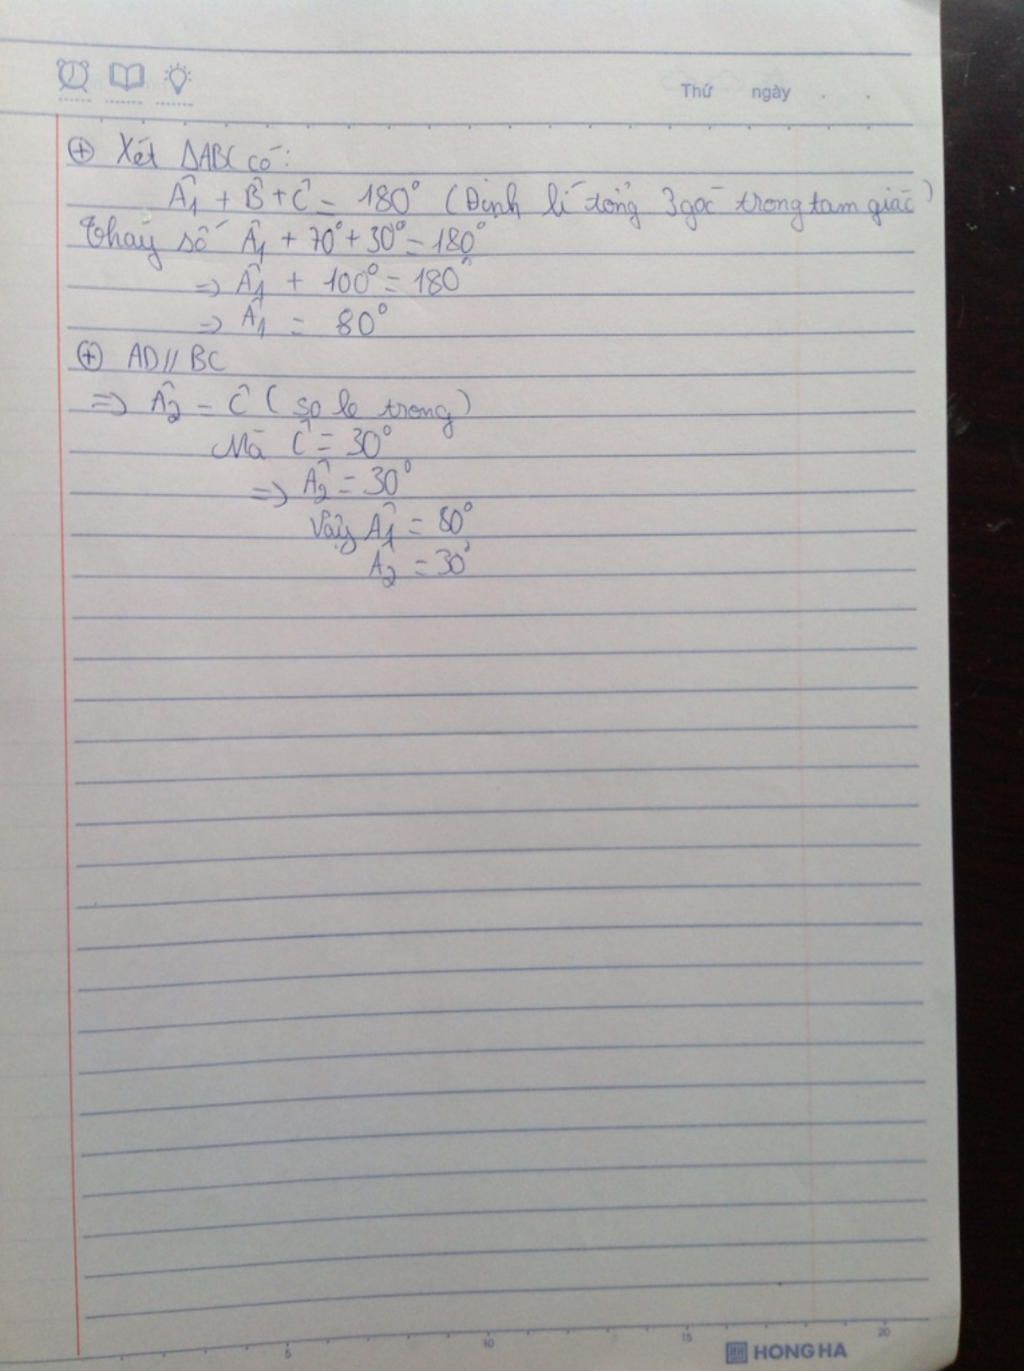 Thứ ngày . .
⊕ Xét ΔABC có:
Â₁ + B̂ + Ĉ = 180° (Định lí tổng 3 góc trong tam giác)
Thay số Â₁ + 70° + 30° = 180°
=> Â₁ + 100° = 180°
=> Â₁ = 80°
⊕ AD // BC
=> Â₂ = Ĉ (so le trong)
Mà Ĉ = 30°
=> Â₂ = 30°
Vậy Â₁ = 80°
Â₂ = 30°
5 10 15 20
HONG HA